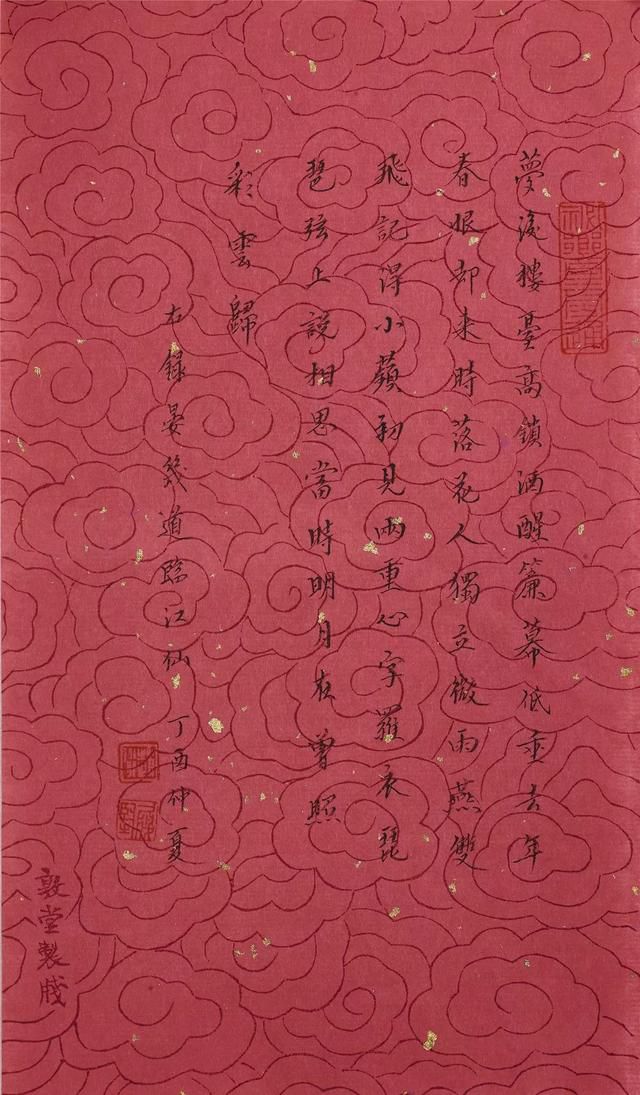 夢後樓臺高鎖酒醒簾幕低垂去年
春恨却来時落花人獨立微雨燕雙
飛記得小蘋初見兩重心字羅衣琵
琶弦上説相思當時明月在曾照
彩雲歸
右録晏幾道臨江仙丁酉仲夏
敦堂製牋